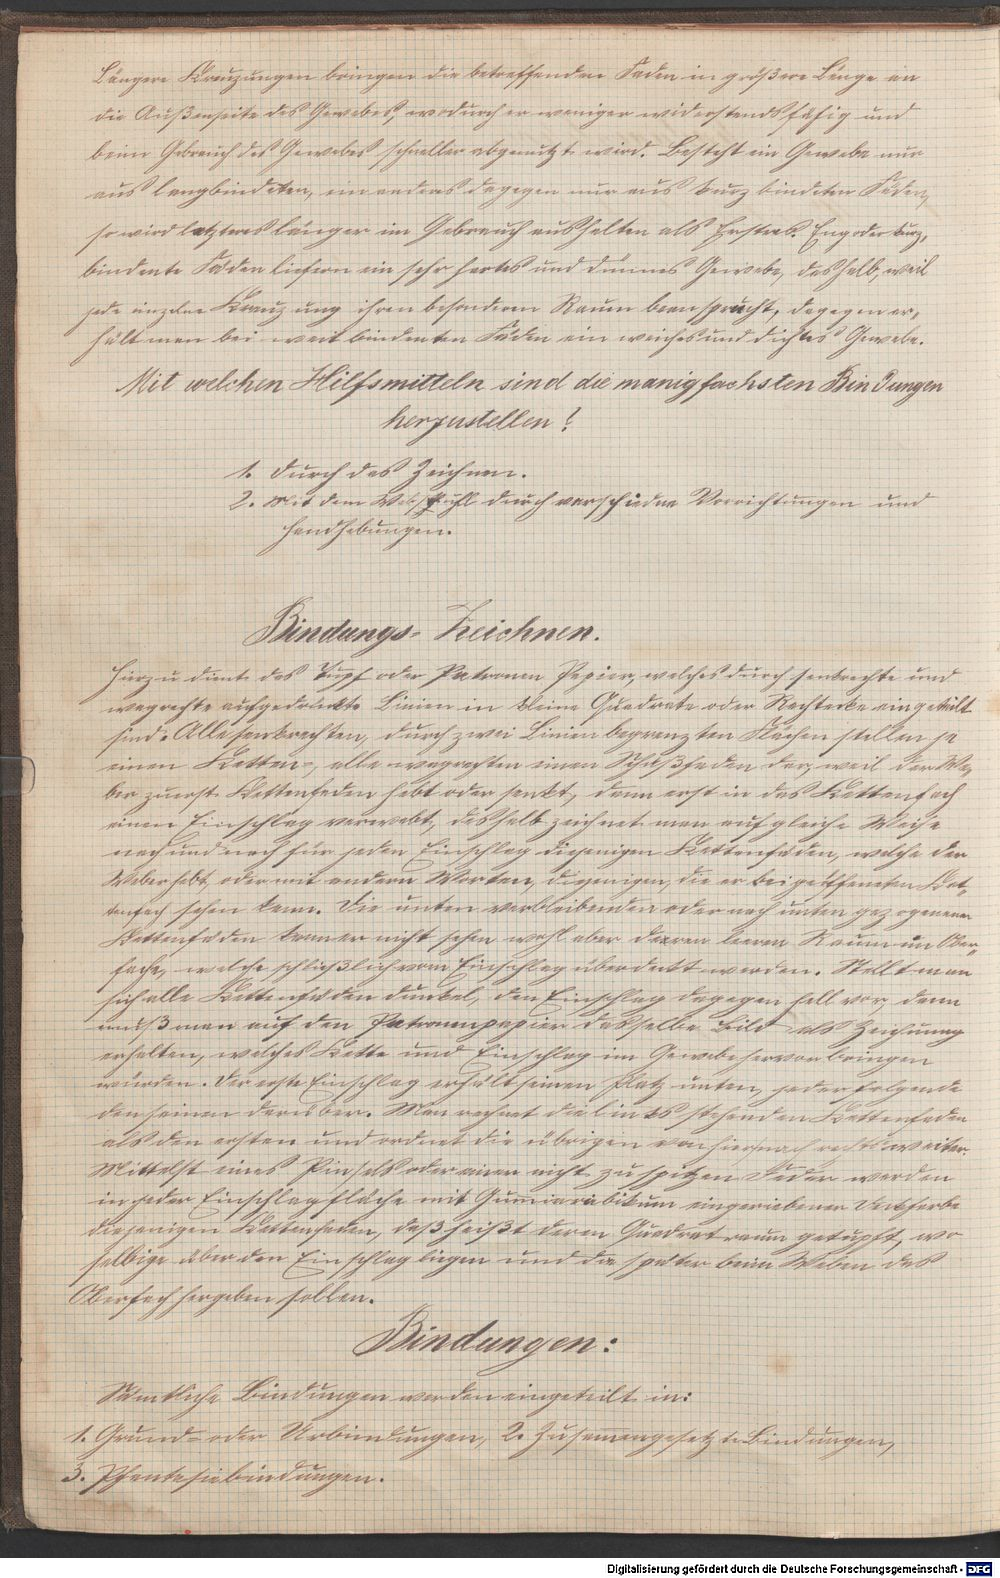 Längere Kreuzungen bringen die betreffenden Faden in größere Länge an
die Außenseite des Gewebes, wodurch er weniger widerstandsfähig und
beim Gebrauch des Gewebes schneller abgenutzt wird. Besteht ein Gewebe nur
aus langbindeten, ein anderes dagegen nur aus kurz bindeten Fäden,
so wird letzteres länger im Gebrauch aushalten als Ersteres. Eng oder kurz,
bindente Fäden liefern ein sehr hartes und dünnes Gewebe, deshalb, weil
jede einzelne Kreuzung ihren besonderen Raum beansprucht, dagegen er,
hält man bei weit bindenten Fäden ein weiches und dichtes Gewebe.
Mit welchen Hilfsmitteln sind die manigfachsten Bindungen
herzustellen?
1. Durch das Zeichnen.
2. Mit dem Webstuhl durch verschiedne Vorrichtungen und
Handhebungen.
Bindungs=Zeichnen.
Hierzu dient das Tupf oder Patronen Papier, welches durch senkrechte und
wagrechte aufgedruckte Linien in kleine Quadrate oder Rechtecke eingeteilt
sind. Alle senkrechten, durch zwei Linien begrenzten Flächen stellen je
einen Ketten=, alle wagrechten einen Schußfaden dar, weil der We=
ber zuerst Kettenfaden hebt oder senkt, dann erst in das Kettenfach
einen Einschlag verwebt, deshalb zeichnet man auf gleiche Weise
nach und nach für jeden Einschlag diejenigen Kettenfäden, welche der
Weber hebt, oder mit andern Worten, diejenigen, die er bei geöffneten Ket=
tenfach sehen kann. Die unten verbleibenden oder nach unten gezogenen
Kettenfäden kann er nicht sehen wohl aber deren leeren Raum im Ober=
fache, welche schließlich vom Einschlag überdeckt werden. Stellt man
sich alle Kettenfäden dunkel, den Einschlag dagegen hell vor, dann
muß man auf den Patronenpapier dasselbe Bild als Zeichnung
erhalten, welches Kette und Einschlag im Gewebe hervorbringen
würden. Der erste Einschlag erhält seinen Platz unten, jeder folgende
den seinen darüber. Man rechnet die links stehenden Kettenfaden
als den ersten und ordnet die übrigen von hier nach rechts weiter
Mittelst eines Pinsels oder einer nicht zu spitzen Feder werden
in jeder Einschlagfläche mit Gumiarabikum eingeriebener Deckfarbe
diejenigen Kettenfaden, daß heißt deren Quadratraum getupft, wo
selbige über den Einschlag liegen und die später beim Weben das
Oberfach hergeben sollen.
Bindungen:
Sämtliche Bindungen werden eingeteilt in:
1. Grund= oder Urbindungen, 2. Zusammengesetzte Bindungen,
3. Phantasiebindungen.
Digitalisierung gefördert durch die Deutsche Forschungsgemeinschaft - DFG